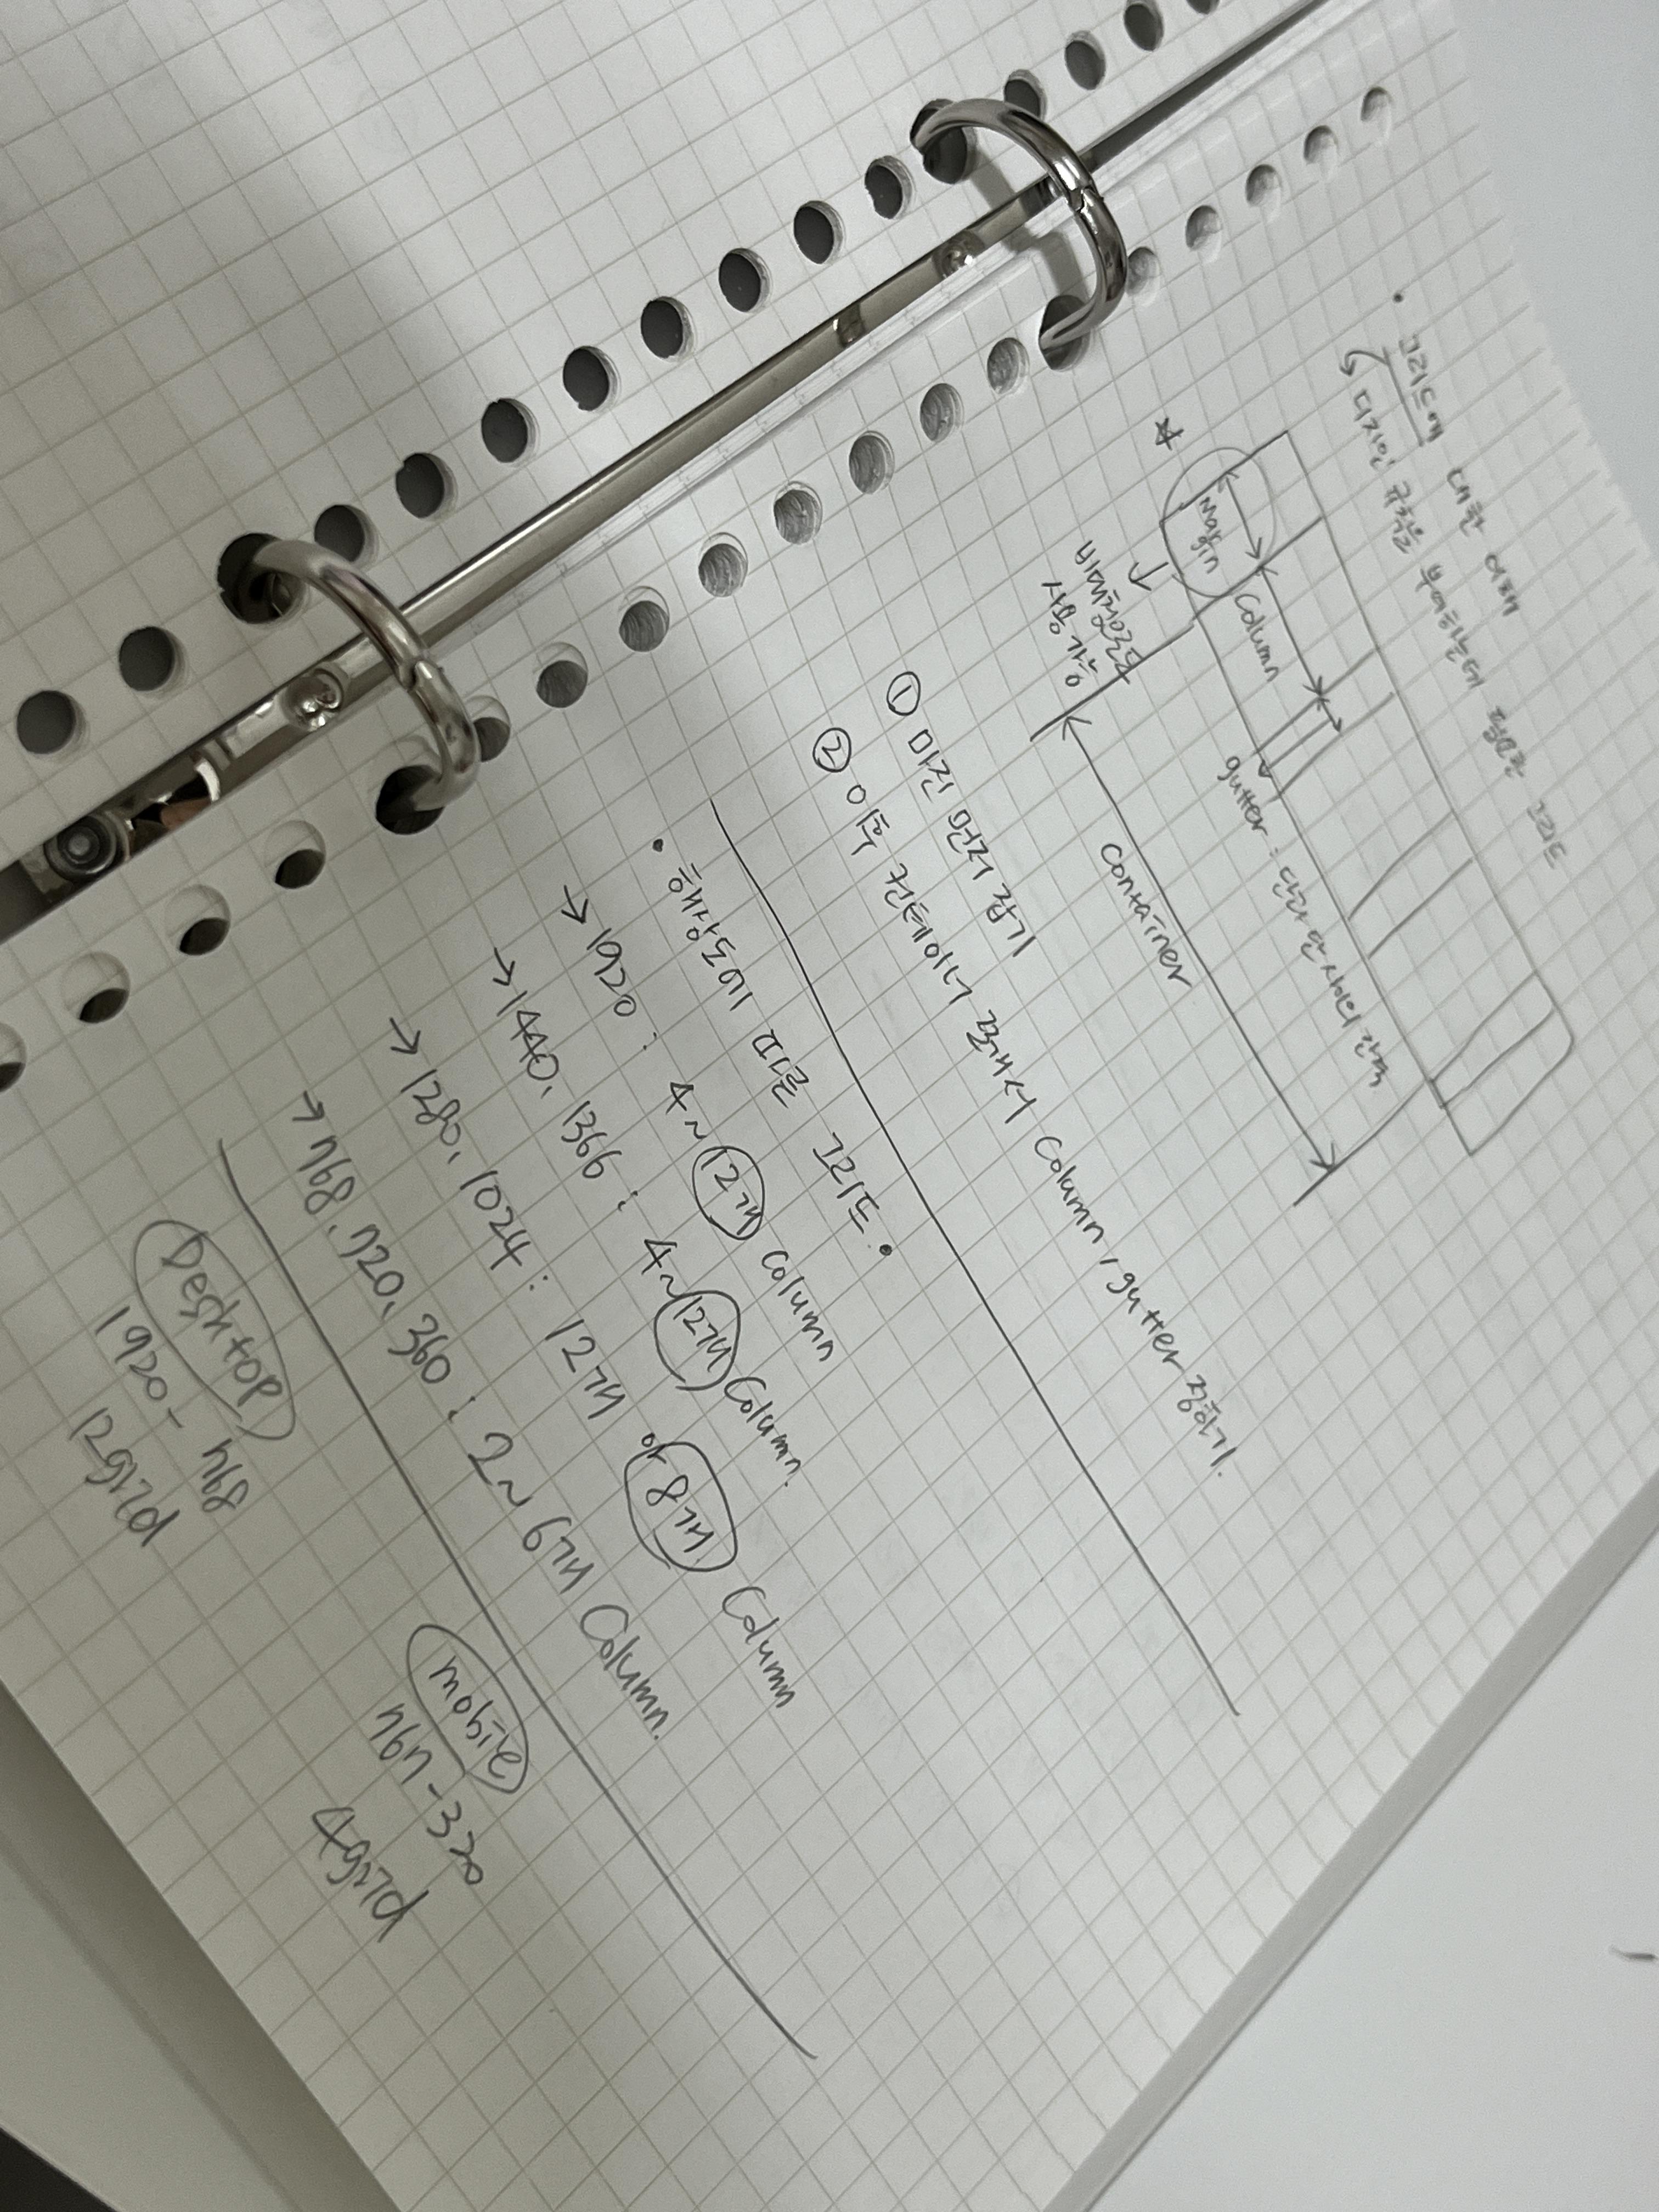 • 그리드에 대한 이해
↳ 디자인 규칙을 부여하는데 적용한 그리드
★ margin
column
gutter : 단과 단 사이의 간격
↓
비대칭으로도
사용가능
container
① 마진 먼저 잡기
② 이후 컨테이너 쪼개서 column, gutter 정하기.
• 해상도에 따른 그리드 •
→ 1920 : 4~12개 column
→ 1440, 1366 : 4~12개 column.
→ 1280, 1024 : 12개 or 8개 column
→ 768, 720, 360 : 2~6개 column.
Desktop
1920 - 768
12grid
mobile
767 - 320
4grid